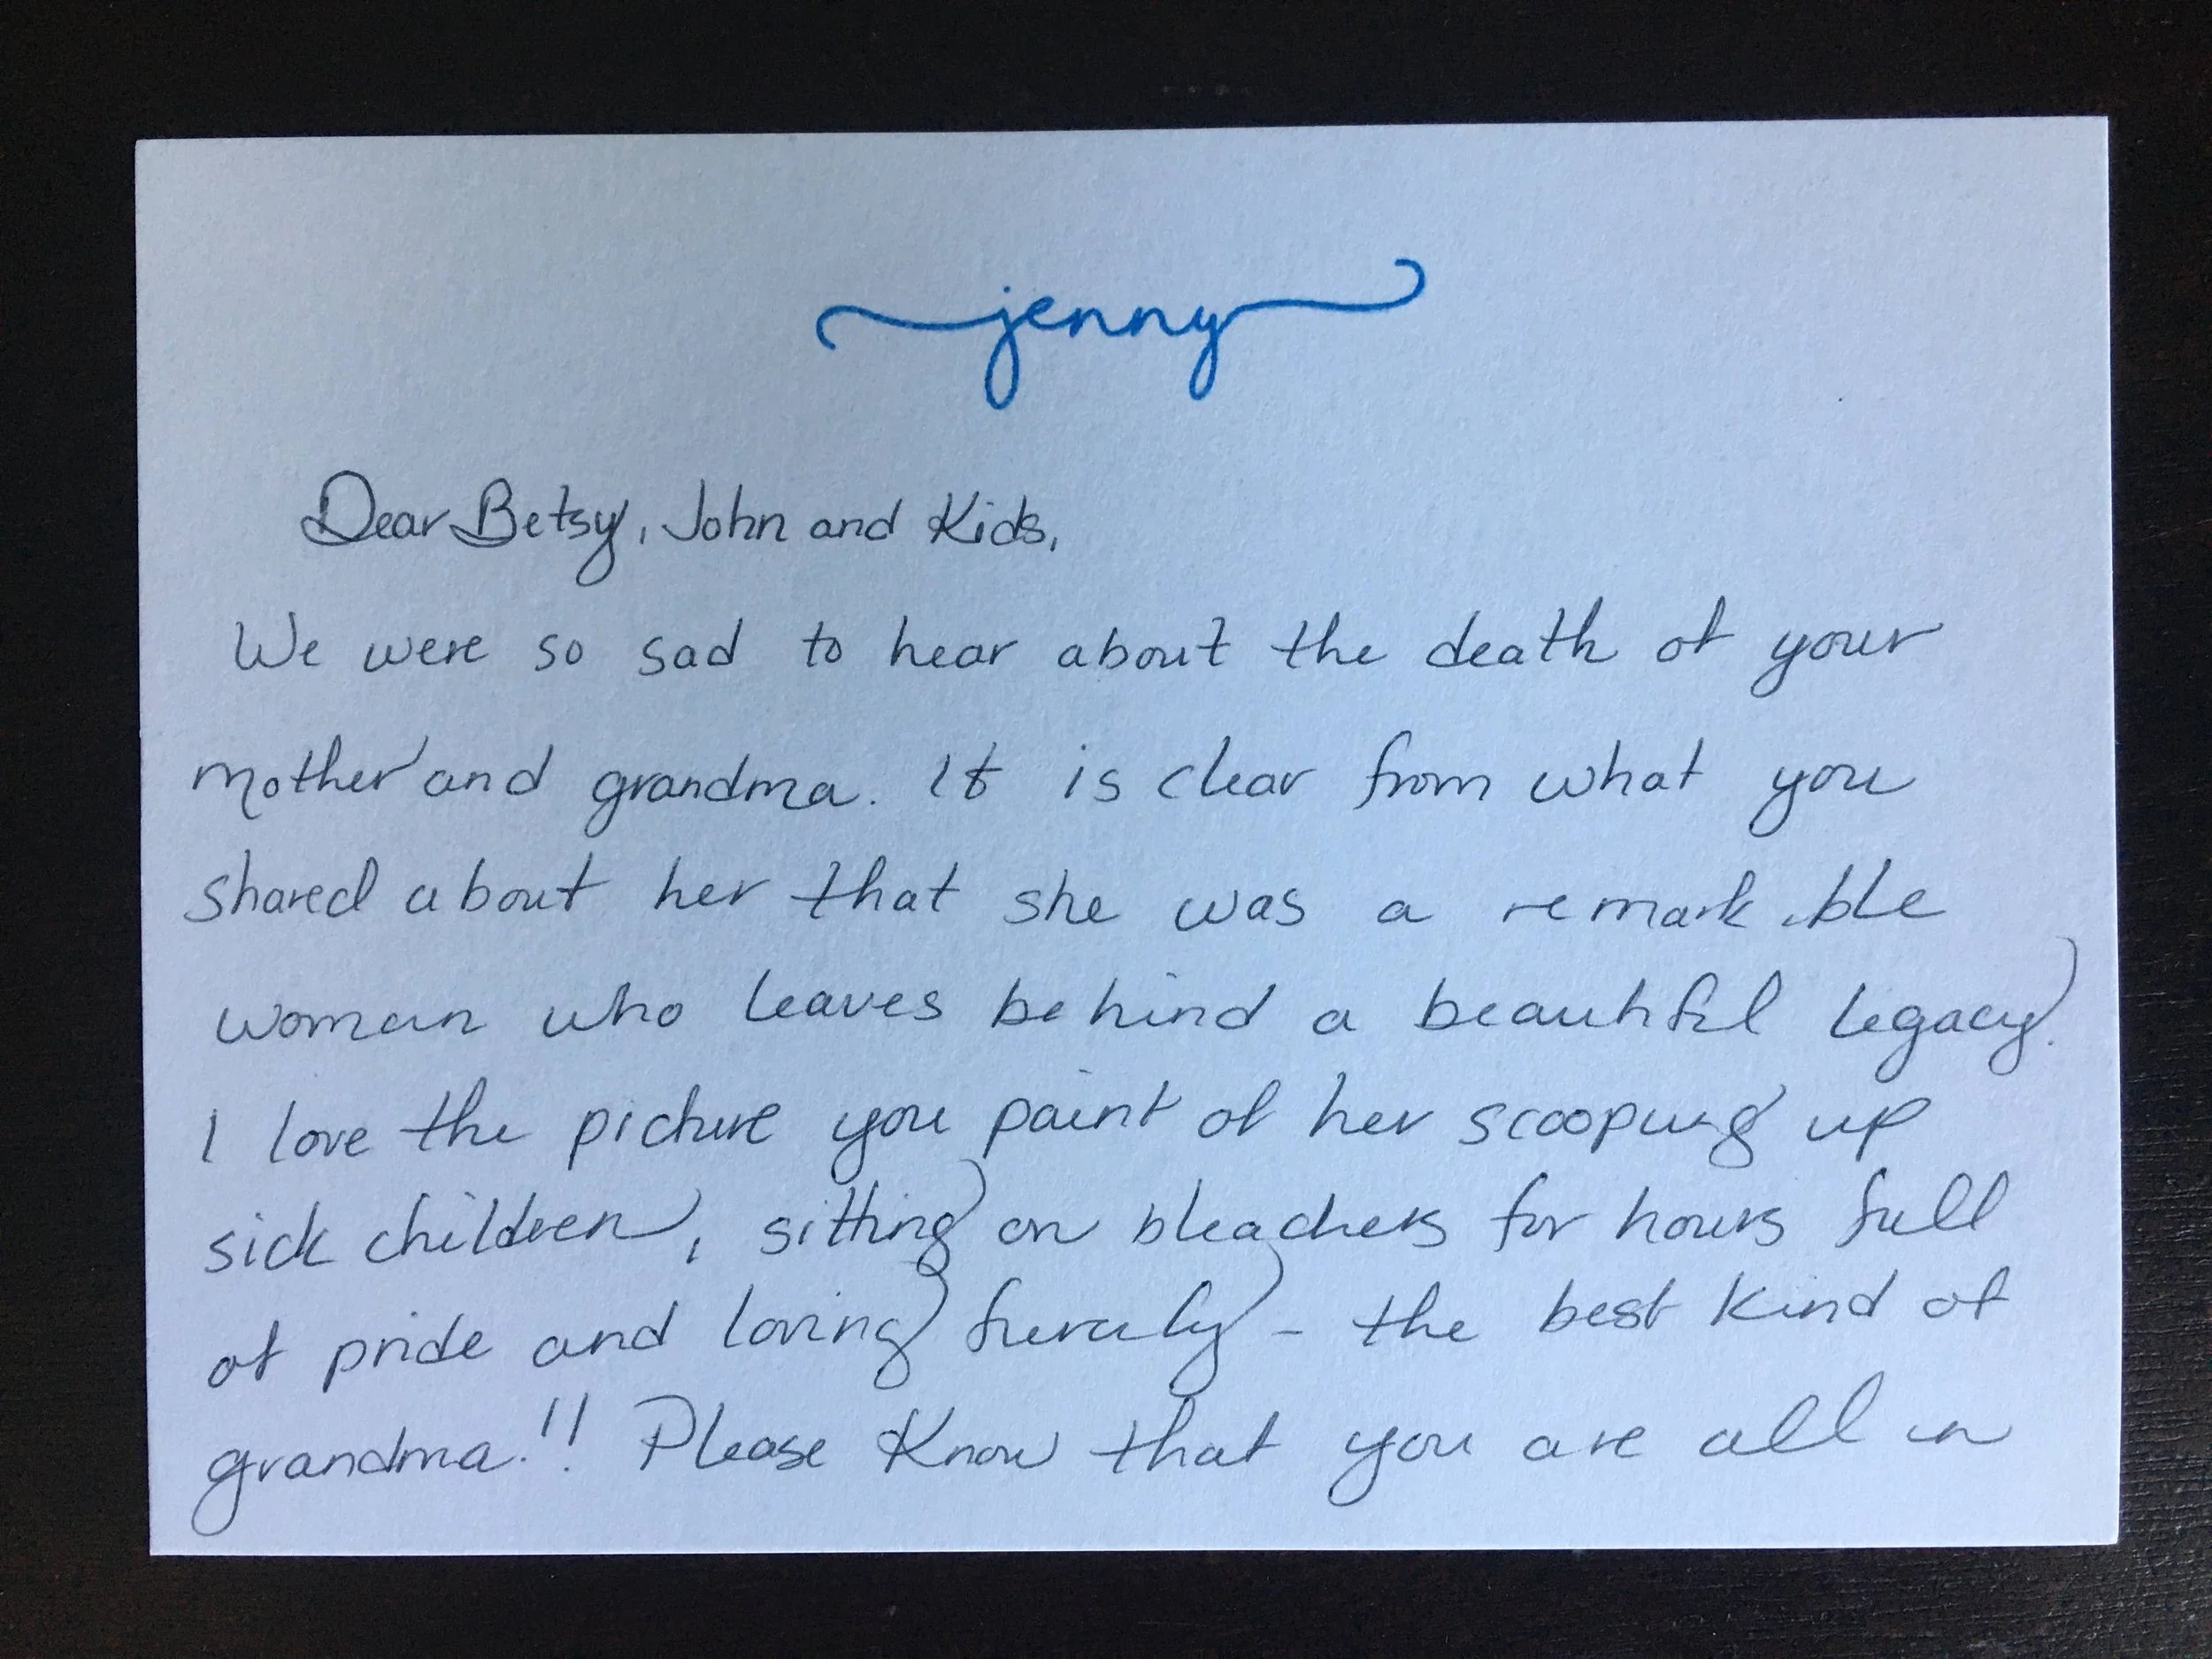 jenny
Dear Betsy, John and Kids,
We were so sad to hear about the death of your
mother and grandma. It is clear from what you
shared about her that she was a remarkable
woman who leaves behind a beautiful legacy.
I love the picture you paint of her scooping up
sick children, sitting on bleachers for hours full
of pride and loving fiercely - the best kind of
grandma!! Please Know that you are all in